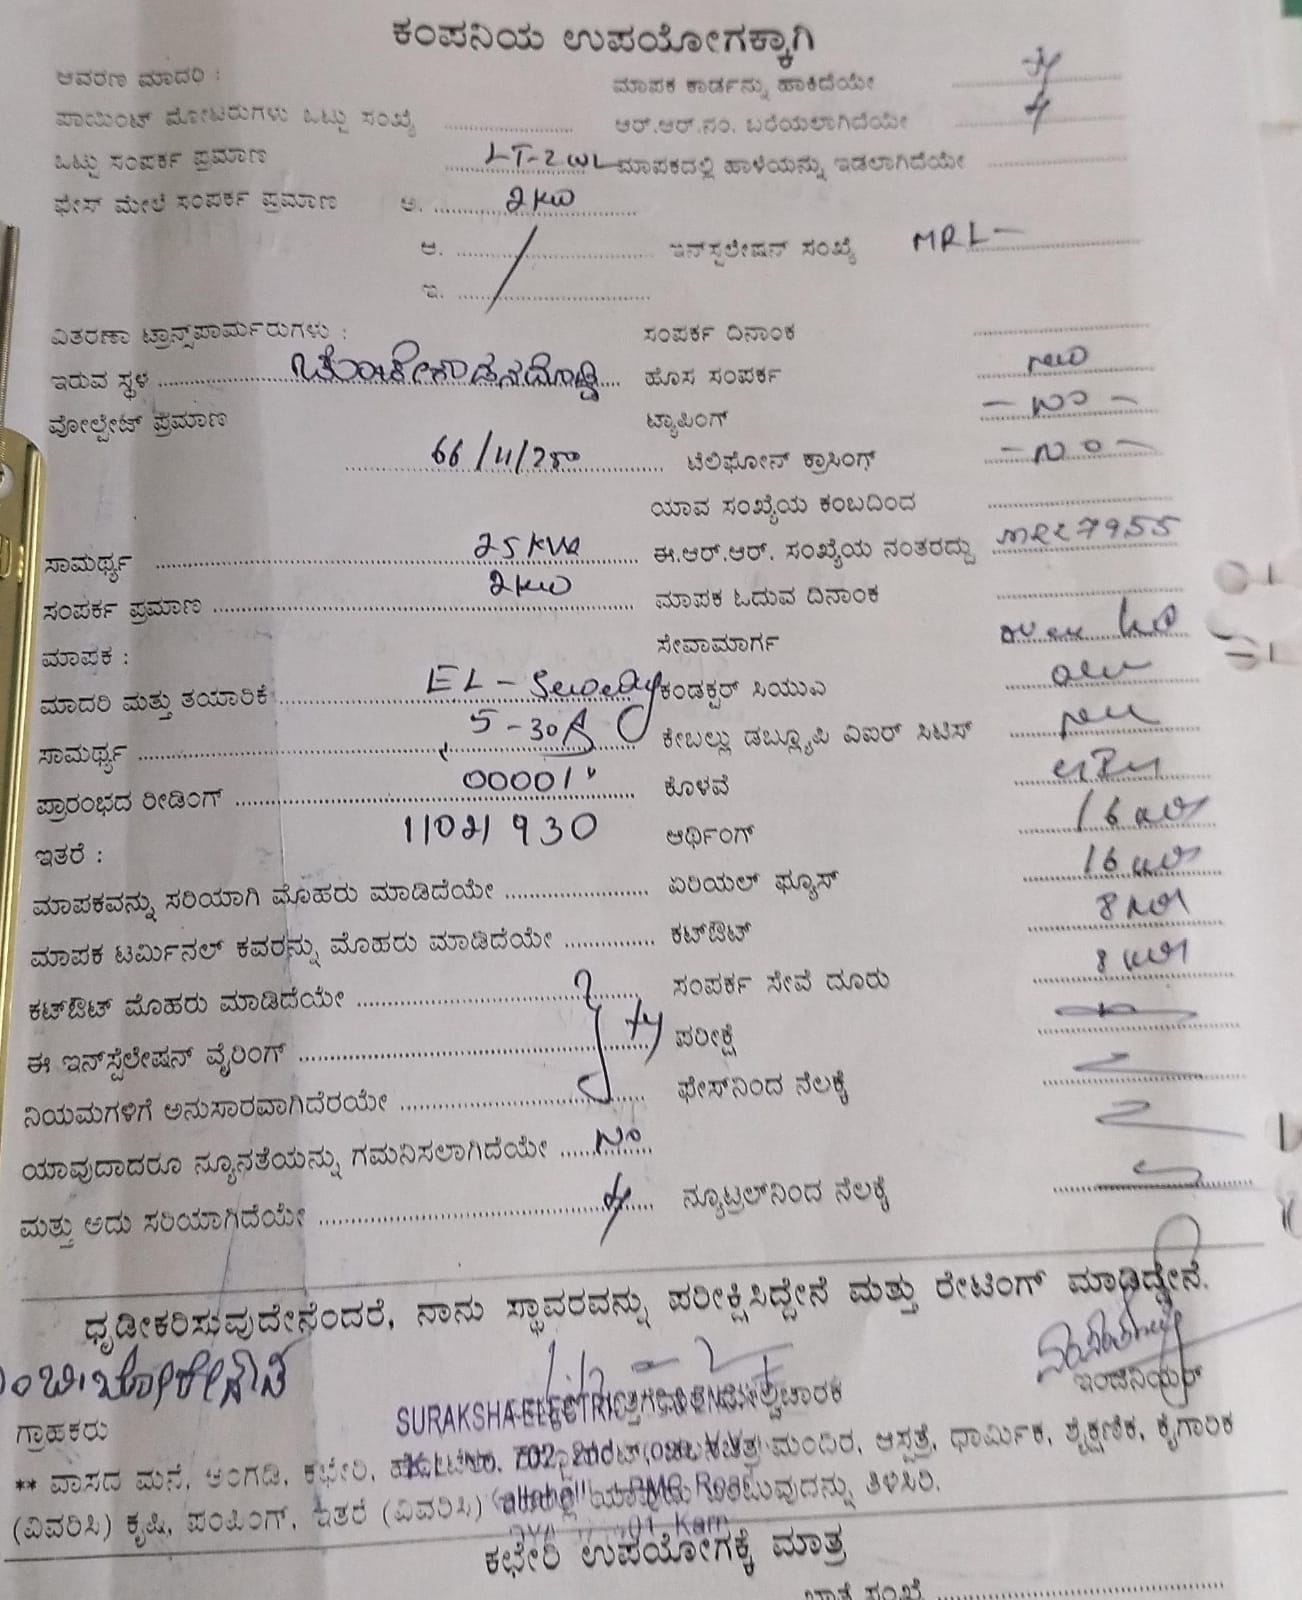 ಕಂಪನಿಯ ಉಪಯೋಗಕ್ಕಾಗಿ
ಆವರಣ ಮಾದರಿ : ಮಾಪಕ ಕಾರ್ಡನ್ನು ಹಾಕಿದೆಯೇ
ಪಾಯಿಂಟ್ ಮೋಟರುಗಳು ಒಟ್ಟು ಸಂಖ್ಯೆ ಆರ್.ಆರ್.ನಂ. ಬರೆಯಲಾಗಿದೆಯೇ
ಒಟ್ಟು ಸಂಪರ್ಕ ಪ್ರಮಾಣ LT-2 ಮಾಪಕದಲ್ಲಿ ಹಾಳೆಯನ್ನು ಇಡಲಾಗಿದೆಯೇ
ಫೇಸ್ ಮೇಲೆ ಸಂಪರ್ಕ ಪ್ರಮಾಣ ಅ. 2kw
ಆ. ಇನ್‌ಸ್ಟಲೇಷನ್ ಸಂಖ್ಯೆ MRL-
ಇ.
ವಿತರಣಾ ಟ್ರಾನ್ಸ್‌ಪಾರ್ಮರುಗಳು : ಸಂಪರ್ಕ ದಿನಾಂಕ
ಇರುವ ಸ್ಥಳ ಹೊಸ ಸಂಪರ್ಕ new
ವೋಲ್ಟೇಜ್ ಪ್ರಮಾಣ ಟ್ಯಾಪಿಂಗ್ - no -
66/11/250 ಟೆಲಿಫೋನ್ ಕ್ರಾಸಿಂಗ್ - no -
ಯಾವ ಸಂಖ್ಯೆಯ ಕಂಬದಿಂದ
ಸಾಮರ್ಥ್ಯ 25 KVA ಈ.ಆರ್.ಆರ್. ಸಂಖ್ಯೆಯ ನಂತರದ್ದು MRL7955
ಸಂಪರ್ಕ ಪ್ರಮಾಣ 2kw ಮಾಪಕ ಓದುವ ದಿನಾಂಕ
ಮಾಪಕ : ಸೇವಾಮಾರ್ಗ
ಮಾದರಿ ಮತ್ತು ತಯಾರಿಕೆ EL - Sewedy ಕಂಡಕ್ಟರ್ ಸಿಯುಎ
ಸಾಮರ್ಥ್ಯ 5-30A ಕೇಬಲ್ಲು ಡಬ್ಲ್ಯೂಪಿ ಎಐಆರ್ ಸಿಟಿಸ್
ಪ್ರಾರಂಭದ ರೀಡಿಂಗ್ 00001 ಕೊಳವೆ
ಇತರೆ : 11021930 ಆರ್ಥಿಂಗ್ 16
ಮಾಪಕವನ್ನು ಸರಿಯಾಗಿ ಮೊಹರು ಮಾಡಿದೆಯೇ ಏರಿಯಲ್ ಫ್ಯೂಸ್ 16
ಮಾಪಕ ಟರ್ಮಿನಲ್ ಕವರನ್ನು ಮೊಹರು ಮಾಡಿದೆಯೇ ಕಟ್‌ಔಟ್ 8
ಕಟ್‌ಔಟ್ ಮೊಹರು ಮಾಡಿದೆಯೇ ಸಂಪರ್ಕ ಸೇವೆ ದೂರು 8
ಈ ಇನ್‌ಸ್ಟಲೇಷನ್ ವೈರಿಂಗ್ ಪರೀಕ್ಷೆ
ನಿಯಮಗಳಿಗೆ ಅನುಸಾರವಾಗಿದೆರಯೇ ಫೇಸ್‌ನಿಂದ ನೆಲಕ್ಕೆ
ಯಾವುದಾದರೂ ನ್ಯೂನತೆಯನ್ನು ಗಮನಿಸಲಾಗಿದೆಯೇ No
ಮತ್ತು ಅದು ಸರಿಯಾಗಿದೆಯೇ ನ್ಯೂಟ್ರಲ್‌ನಿಂದ ನೆಲಕ್ಕೆ
ಧೃಡೀಕರಿಸುವುದೇನೆಂದರೆ, ನಾನು ಸ್ಥಾವರವನ್ನು ಪರೀಕ್ಷಿಸಿದ್ದೇನೆ ಮತ್ತು ರೇಟಿಂಗ್ ಮಾಡಿದ್ದೇನೆ.
ಇಂಜಿನಿಯರ್
ಗ್ರಾಹಕರು SURAKSHA ELECTRIC
** ವಾಸದ ಮನೆ, ಅಂಗಡಿ, ಕಛೇರಿ, ಮಂದಿರ, ಆಸ್ಪತ್ರೆ, ಧಾರ್ಮಿಕ, ಶೈಕ್ಷಣಿಕ, ಕೈಗಾರಿಕ
(ವಿವರಿಸಿ) ಕೃಷಿ, ಪಂಪಿಂಗ್, ಇತರೆ (ವಿವರಿಸಿ) ತಿಳಿಸಿರಿ.
ಕಛೇರಿ ಉಪಯೋಗಕ್ಕೆ ಮಾತ್ರ
ಖಾತೆ ಸಂಖ್ಯೆ